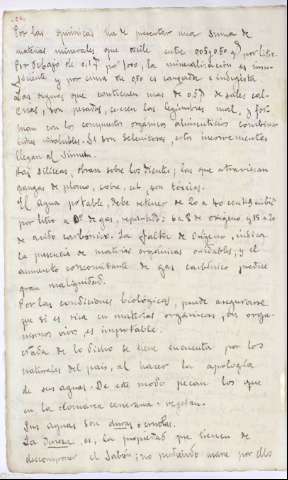 Por las químicas ha de presentar una suma de
materias minerales que oscile entre 0'05 y 0'50 gr por litro
Por debajo de 0.15 por 1000, la mineralización es insu-
ficiente y por cima de 0'50 es cargada e indigesta
Las aguas que contienen mas de 0.50 de sales cal-
cáreas, son pesadas, cuecen las legumbres mal, y for-
man con los compuestos organicos alimenticios combinacio-
nes insolubles. Si son Selenitosas, estos inconvenientes
llegan al Sumum.
Las Silíceas, obran sobre los dientes; las que atraviesan
gangas de plomo, cobre, etc. son tóxicas.
El agua potable, debe retener de 20 a 40 centk cúbic
por litro a 0º de gas, repartidos: 6 a 8 de oxígeno y 15 a 20
de acido carbónico. La falta de oxígeno, indica
la presencia de materias orgánicas oxidables, y el
aumento concomitante de gas carbónico predice
gran malignidad.
Por las condiciones biológicas, puede asegurarse
que si es rica en materias organicas, en orga-
nismos vivos, es impotable.
Nada de lo dicho se tiene en cuenta por los
naturales del país, al hacer la apología
de sus aguas. De este modo pecan los que
en la comarca cenenana vegetan.
Sus aguas son duras o crudas.
La Dureza es, la propiedad que tienen de
descomponer el Jabón; no pudiendo usarse por ellos